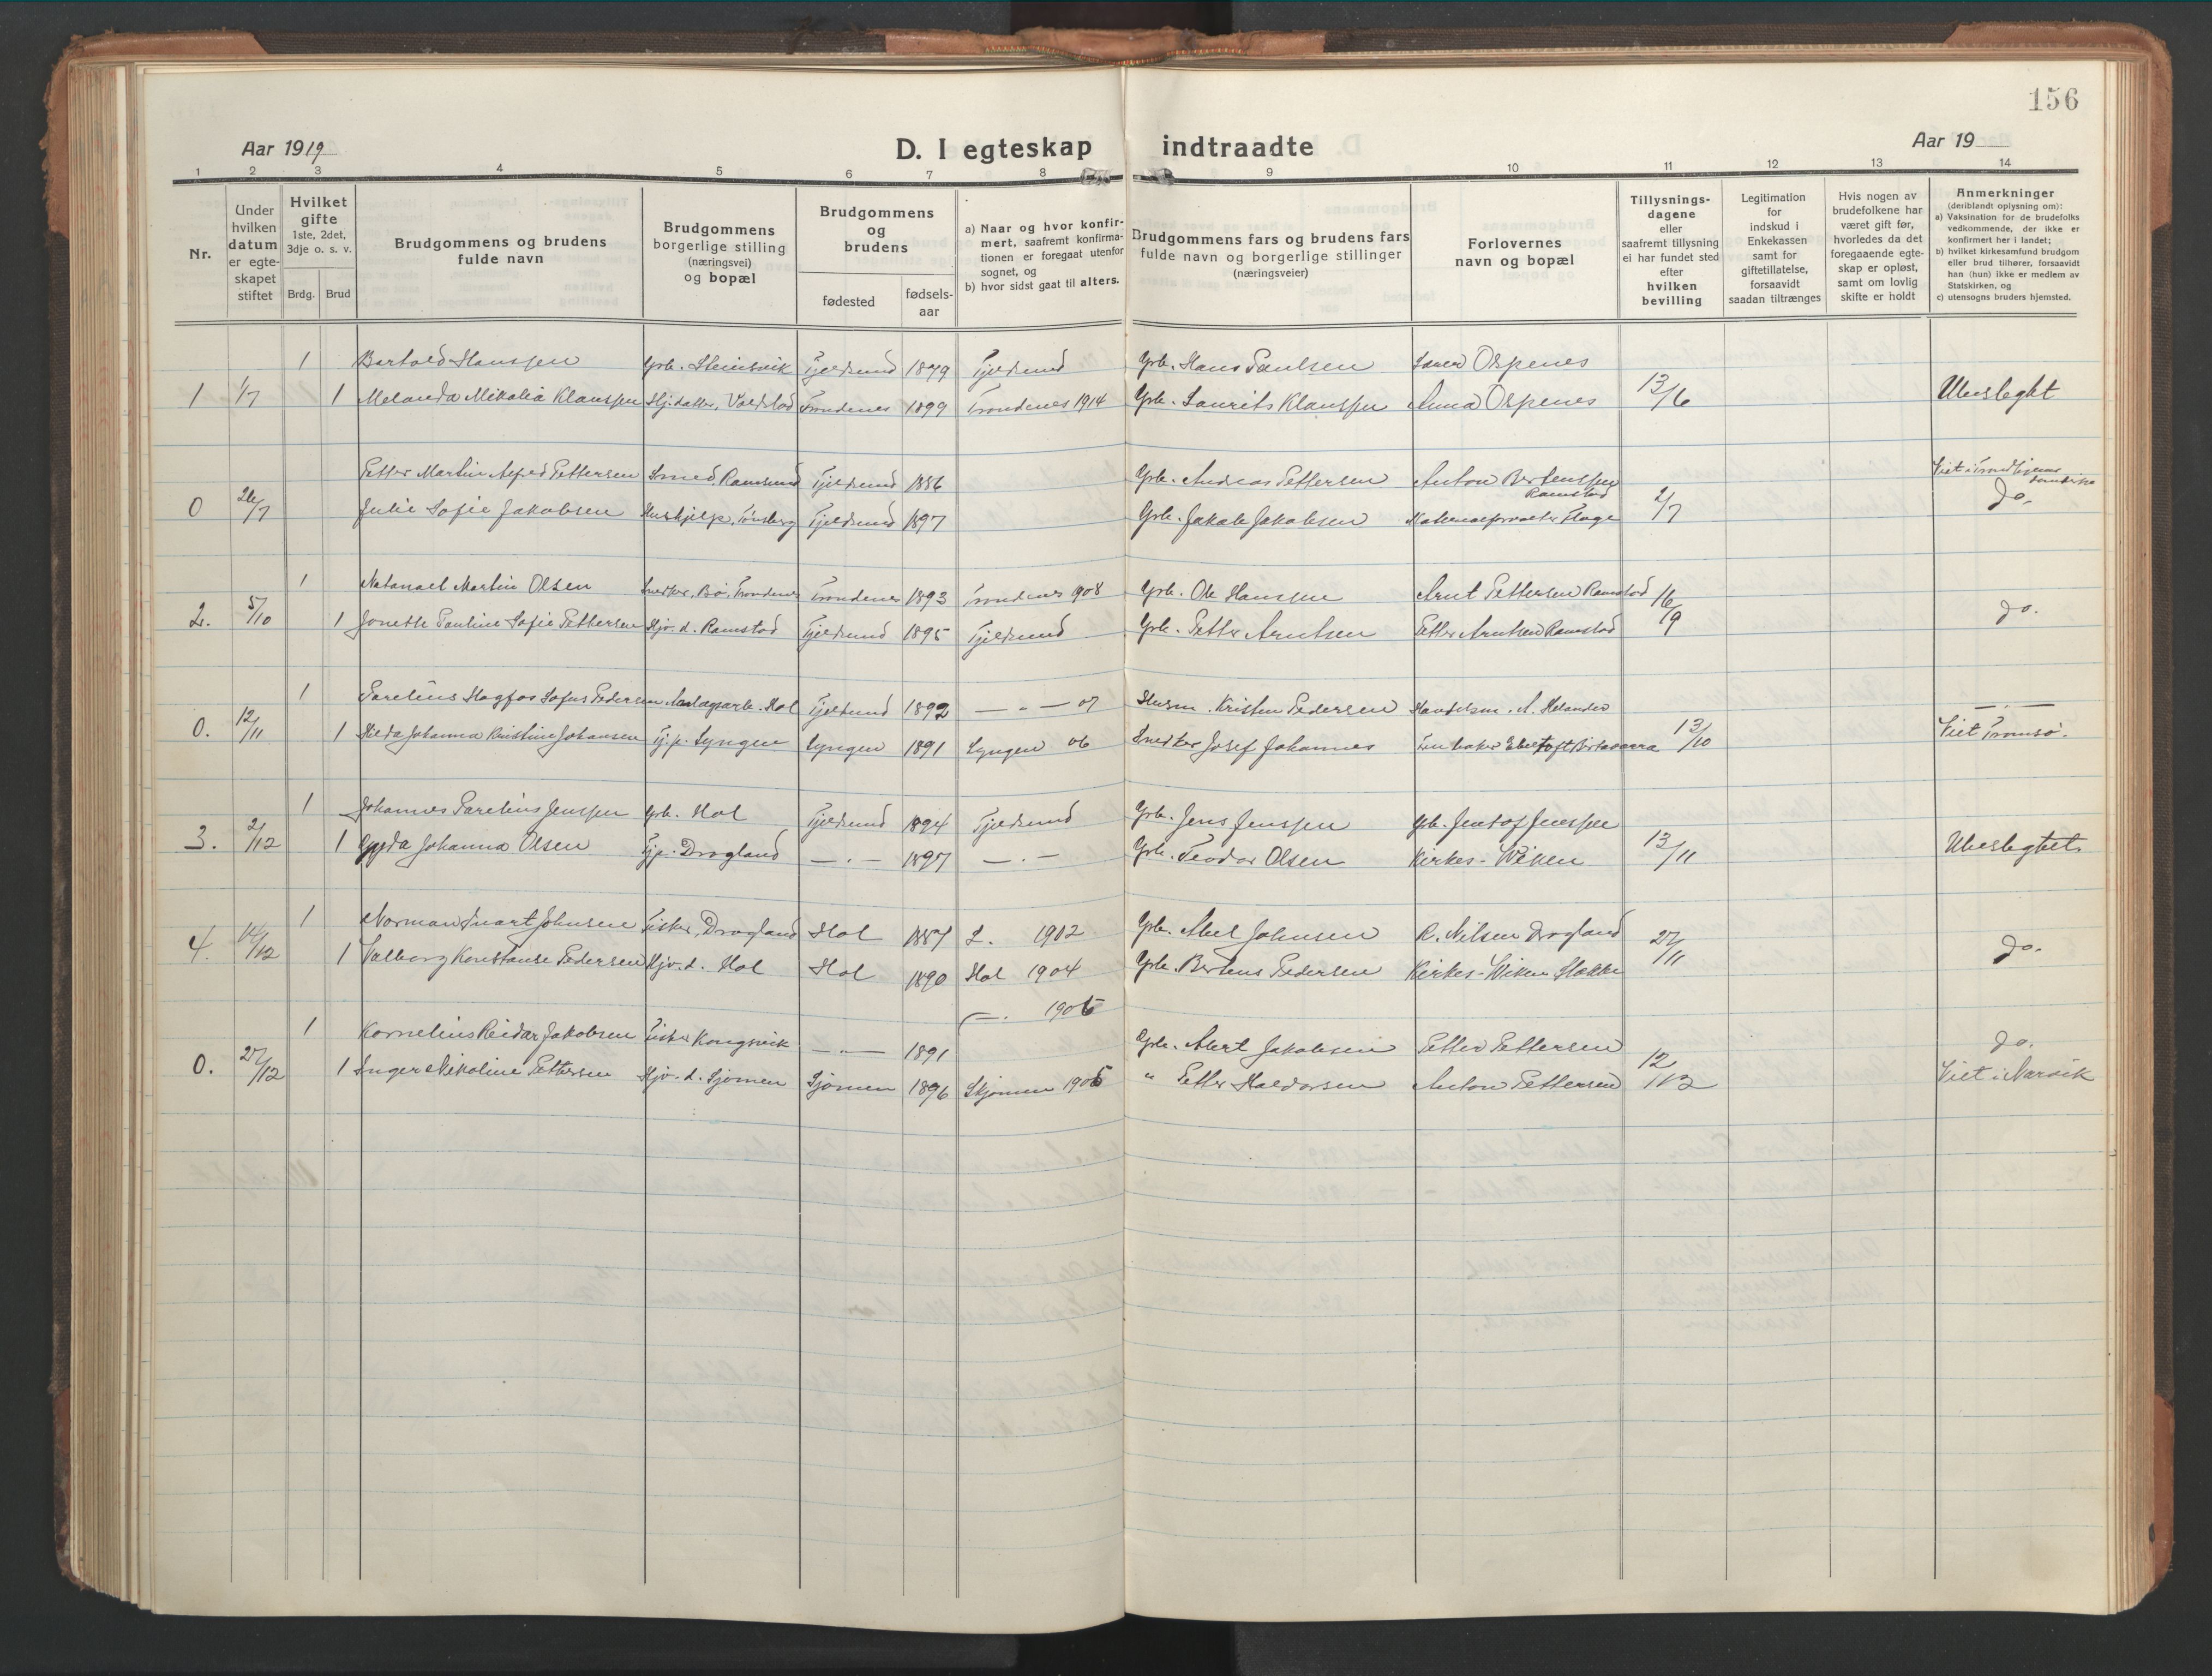 156
Aar 1919
D. I egteskap indtraadte
Aar 19
1 2 3 4 5 6 7 8 9 10 11 12 13 14
Nr.
Under hvilken datum er egteskapet stiftet
Hvilket gifte 1ste, 2det, 3dje o. s. v.
Brdg. Brud
Brudgommens og brudens fulde navn
Brudgommens borgerlige stilling (næringsvei) og bopæl
Brudgommens og brudens
fødested
fødsels-aar
a) Naar og hvor konfir-mert, saafremt konfirma-tionen er foregaat utenfor sognet, og
b) hvor sidst gaat til alters.
Brudgommens fars og brudens fars fulde navn og borgerlige stillinger (næringsveier)
Forlovernes navn og bopæl
Tillysnings-dagene eller saafremt tillysning ei har fundet sted efter hvilken bevilling
Legitimation for indskud i Enkekassen samt for giftetillatelse, forsaavidt saadan tiltrænges
Hvis nogen av brudefolkene har været gift før, hvorledes da det foregaaende egte-skap er opløst, samt om lovlig skifte er holdt
Anmerkninger (deriblandt oplysning om):
a) Vaksination for de brudefolks vedkommende, der ikke er konfirmert her i landet;
b) hvilket kirkesamfund brudgom eller brud tilhører, forsaavidt han (hun) ikke er medlem av Statskirken, og
c) utensogns bruders hjemsted.
1 Bertold Hanssen Grb. Steinsvik Tjeldsund 1879 Tjeldsund Grb. Hans Paulsen Ospenes
1 1/7 1 Melanda Mikalia Klaussen Hj. datter, Voldstad Trondenes 1899 Trondenes 1914 Grb. Laurits Klaussen Anna Ospenes 13/6 Ubeslegtet
Petter Martin Alfred Pettersen Smed, Ramsund Tjeldsund 1886 Grb. Andreas Pettersen Anton Bertenssen Ramstad Viet i Trondhjems domkirke
0 26/7 Julie Sofie Jakobsen Hushjelp, Tønsberg Tjeldsund 1897 Grb. Jakob Jakobsen Flage 2/7 do.
1 Natanael Martin Olsen Snedker, Bø, Trondenes Trondenes 1893 Trondenes 1908 Grb. Ole Hanssen Arnt Pettersen Ramstad
2. 5/10 1 Jonette Pauline Sofie Pettersen Hjv. d. Ramstad Tjeldsund 1895 Tjeldsund Grb. Petter Arntsen Petter Arntsen Ramstad 16/9 do.
1 Parelius Hagfos Sofus Pedersen Anlagsarb. Hol Tjeldsund 1892 — " — 07 Husm. Kristen Pedersen Handelsm. A. Helander — . —
0. 12/11 1 Hilda Johanna Kristine Johansen Tj.p. Lyngen Lyngen 1891 Lyngen 06 Snedker Josef Johannes Ebeltoft Birtavarra 13/10 Viet Tromsø.
1 Johannes Parelius Jenssen Grb. Hol Tjeldsund 1894 Tjeldsund Grb. Jens Jenssen Grb. Jentof Jenssen
3. 2/12 1 Gyda Johanna Olsen Tj.p. Dragland — . — 1897 — . — Grb. Teodor Olsen Kirkes. Wiken 13/11 Ubeslegtet.
1 Norman Evart Johnsen Fisker, Dragland Hol 1887 L. 1902 Grb. Abel Johnsen R. Nilsen Dragland
4. 14/12 1 Valborg Konstanse Pedersen Hjv. d. Hol Hol 1890 Hol 1904 Grb. Berteus Pedersen Kirkes. Wiken Stokke 27/11 do.
1 Kornelius Reidar Jakobsen Fisker Kongsvik — " — 1891 — . 1906 Grb. Albert Jakobsen Petter Pettersen do.
0. 27/12 1 Inger Nikoline Pettersen Hjv. d. Sjomen Sjomen 1896 Skjomen 1905 " Petter Haldorsen Anton Pettersen 12/12 Viet i Narvik